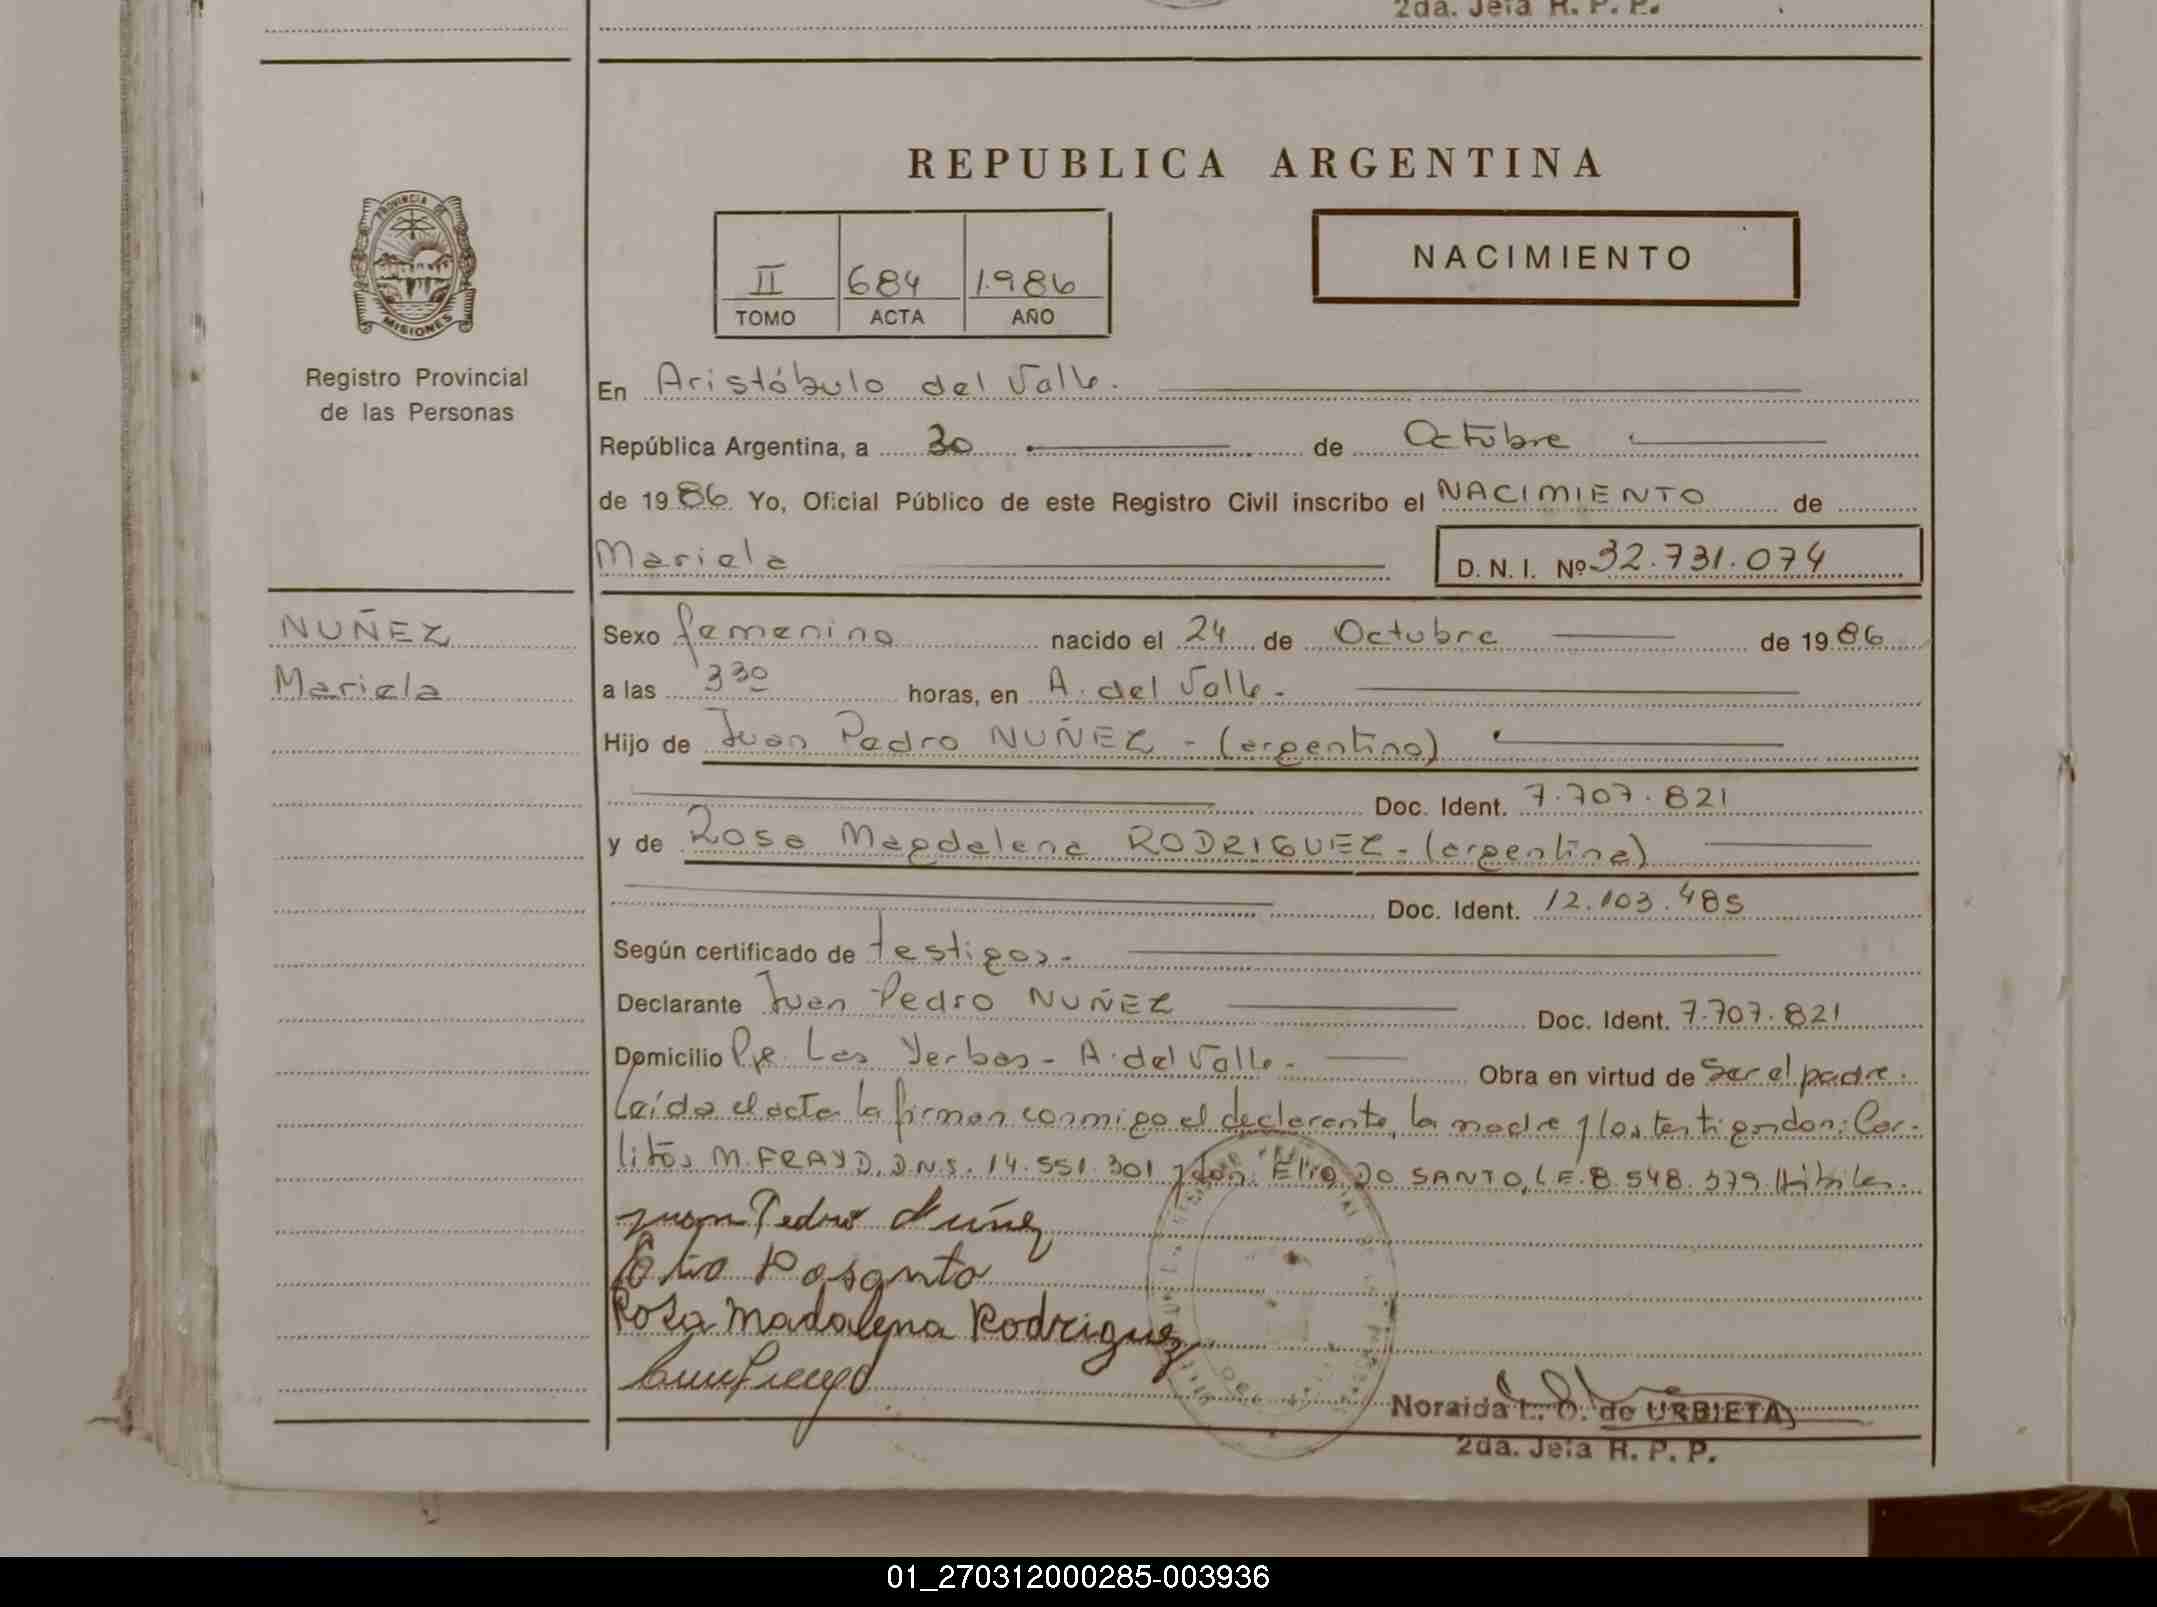 2da. Jefa R. P. P.
REPUBLICA ARGENTINA
NACIMIENTO
II 684 1.986
TOMO ACTA AÑO
PROVINCIA DE
MISIONES
Registro Provincial
de las Personas
En Aristóbulo del Valle.
República Argentina, a 30 de Octubre
de 1986. Yo, Oficial Público de este Registro Civil inscribo el NACIMIENTO de
Mariela D. N. I. Nº 32.731.074
NUÑEZ
Mariela
Sexo femenino nacido el 24 de Octubre de 1986
a las 3 30 horas, en A. del Valle.
Hijo de Juan Pedro NUÑEZ - (argentino)
Doc. Ident. 7.707.821
y de Rosa Magdalena RODRIGUEZ - (argentina)
Doc. Ident. 12.103.485
Según certificado de testigos.
Declarante Juan Pedro NUÑEZ Doc. Ident. 7.707.821
Domicilio Pje. Las Yerbas - A. del Valle - Obra en virtud de Ser el padre.
Leída el acta la firman conmigo el declarante, la madre y los testigos don: Car-
litos M. FRAYD, D.N.I. 14.551.301 y don Elio DO SANTO, L.E. 8.548.379. Hábiles.
Juan Pedro Nuñez
Elio Dosanto
Rosa Madalena Rodriguez
Noraida L. O. de URBIETA
2da. Jefa R. P. P.
01_270312000285-003936